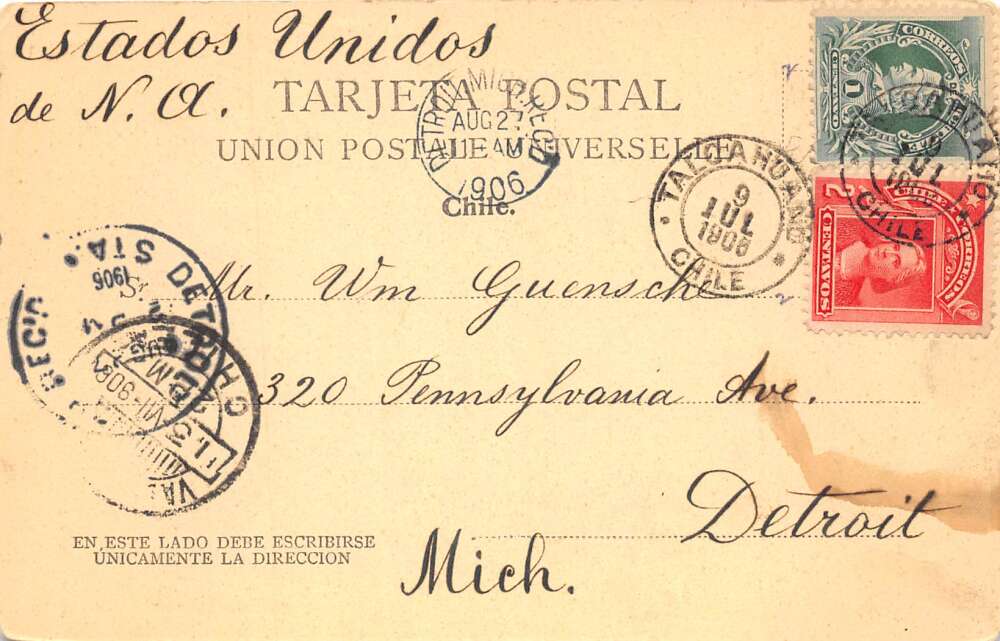 Estados Unidos
de N. A.
TARJETA POSTAL
UNION POSTALE UNIVERSELLE
Chile.
DETROIT MICH. REC'D
AUG 27
AM
1906
TALCAHUANO
9
JUL
1906
CHILE
CORREOS
1
CENTAVO
TALCAHUANO
JUL
CHILE
2
CHILE CORREOS
CENTAVOS
DETROIT
STA.
1906
REC'D
CHILE
Mr. Wm Guensche
320 Pennsylvania Ave.
Detroit
Mich.
EN ESTE LADO DEBE ESCRIBIRSE
ÚNICAMENTE LA DIRECCION